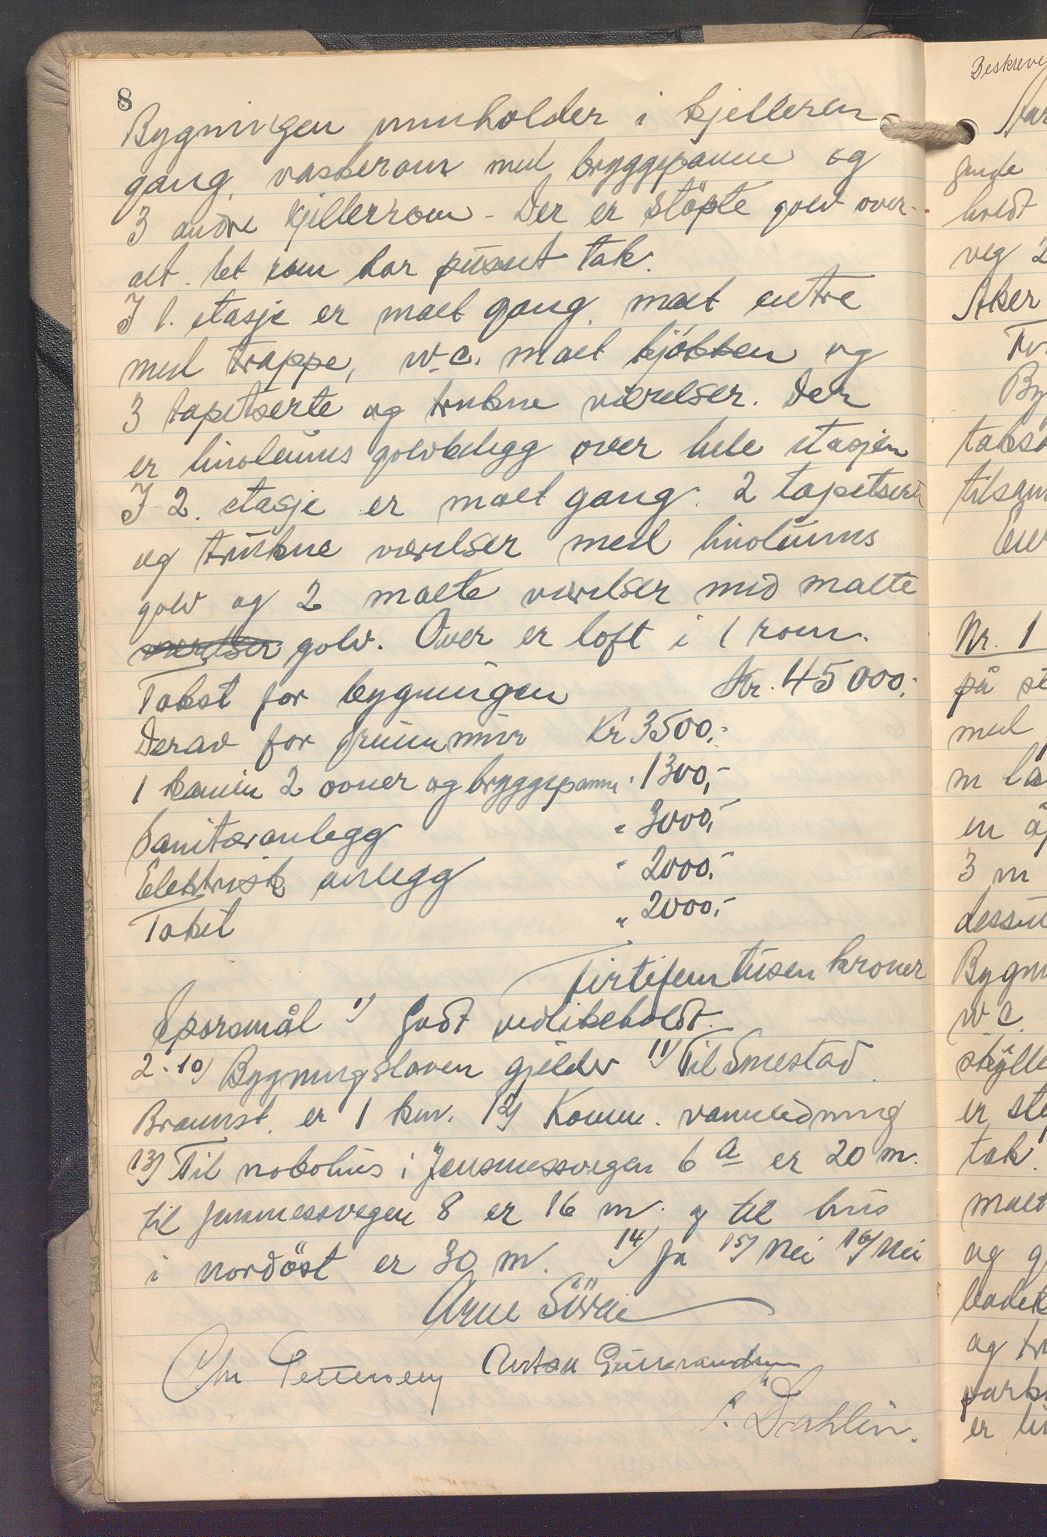 8
Bygningen innholder i kjelleren
gang, vaskerom med bryggepanne og
3 andre kjellerrom - Der er støpte golv over-
alt. Et rom har pusset tak.
I 1. etasje er malt gang, malt entre
med trappe, w.c. malt kjøkken og
3 tapetserte og trukne værelser. Der
er linoleums golvbelegg over hele etasjen
I 2. etasje er malt gang. 2 tapetserte
og trukne værelser med linoleums
golv og 2 malte værelser med malte
værelser golv. Over er loft i 1 rom.
Takst for bygningen Kr. 45000,-
Derav for grunnmur Kr 3500,-
1 kamin 2 ovner og bryggepanne " 1300,-
Sanitæranlegg " 3000,-
Elektrisk anlegg " 2000,-
Taket " 2000,-
Førtifemtusen kroner
Spørsmål 1) Godt vedlikeholdt.
2-10) Bygningsloven gjelder 11) Til Smestad
Brannst. er 1 km. 12) Komm. vannledning
13) Til nabohus i Jonsmessvegen 6 a er 20 m.
til Jonsmessvegen 8 er 16 m. og til hus
i nordøst er 30 m. 14) Ja 15) Nei 16) Nei
Arne
Chr Pettersen Anton Gulbrandsen
Dahlin.
Beskrive
holdt
veg 2
Aker
By
Nr. 1
på
med
m
en
3 m
w c
er
tak
malt
og g
og
er